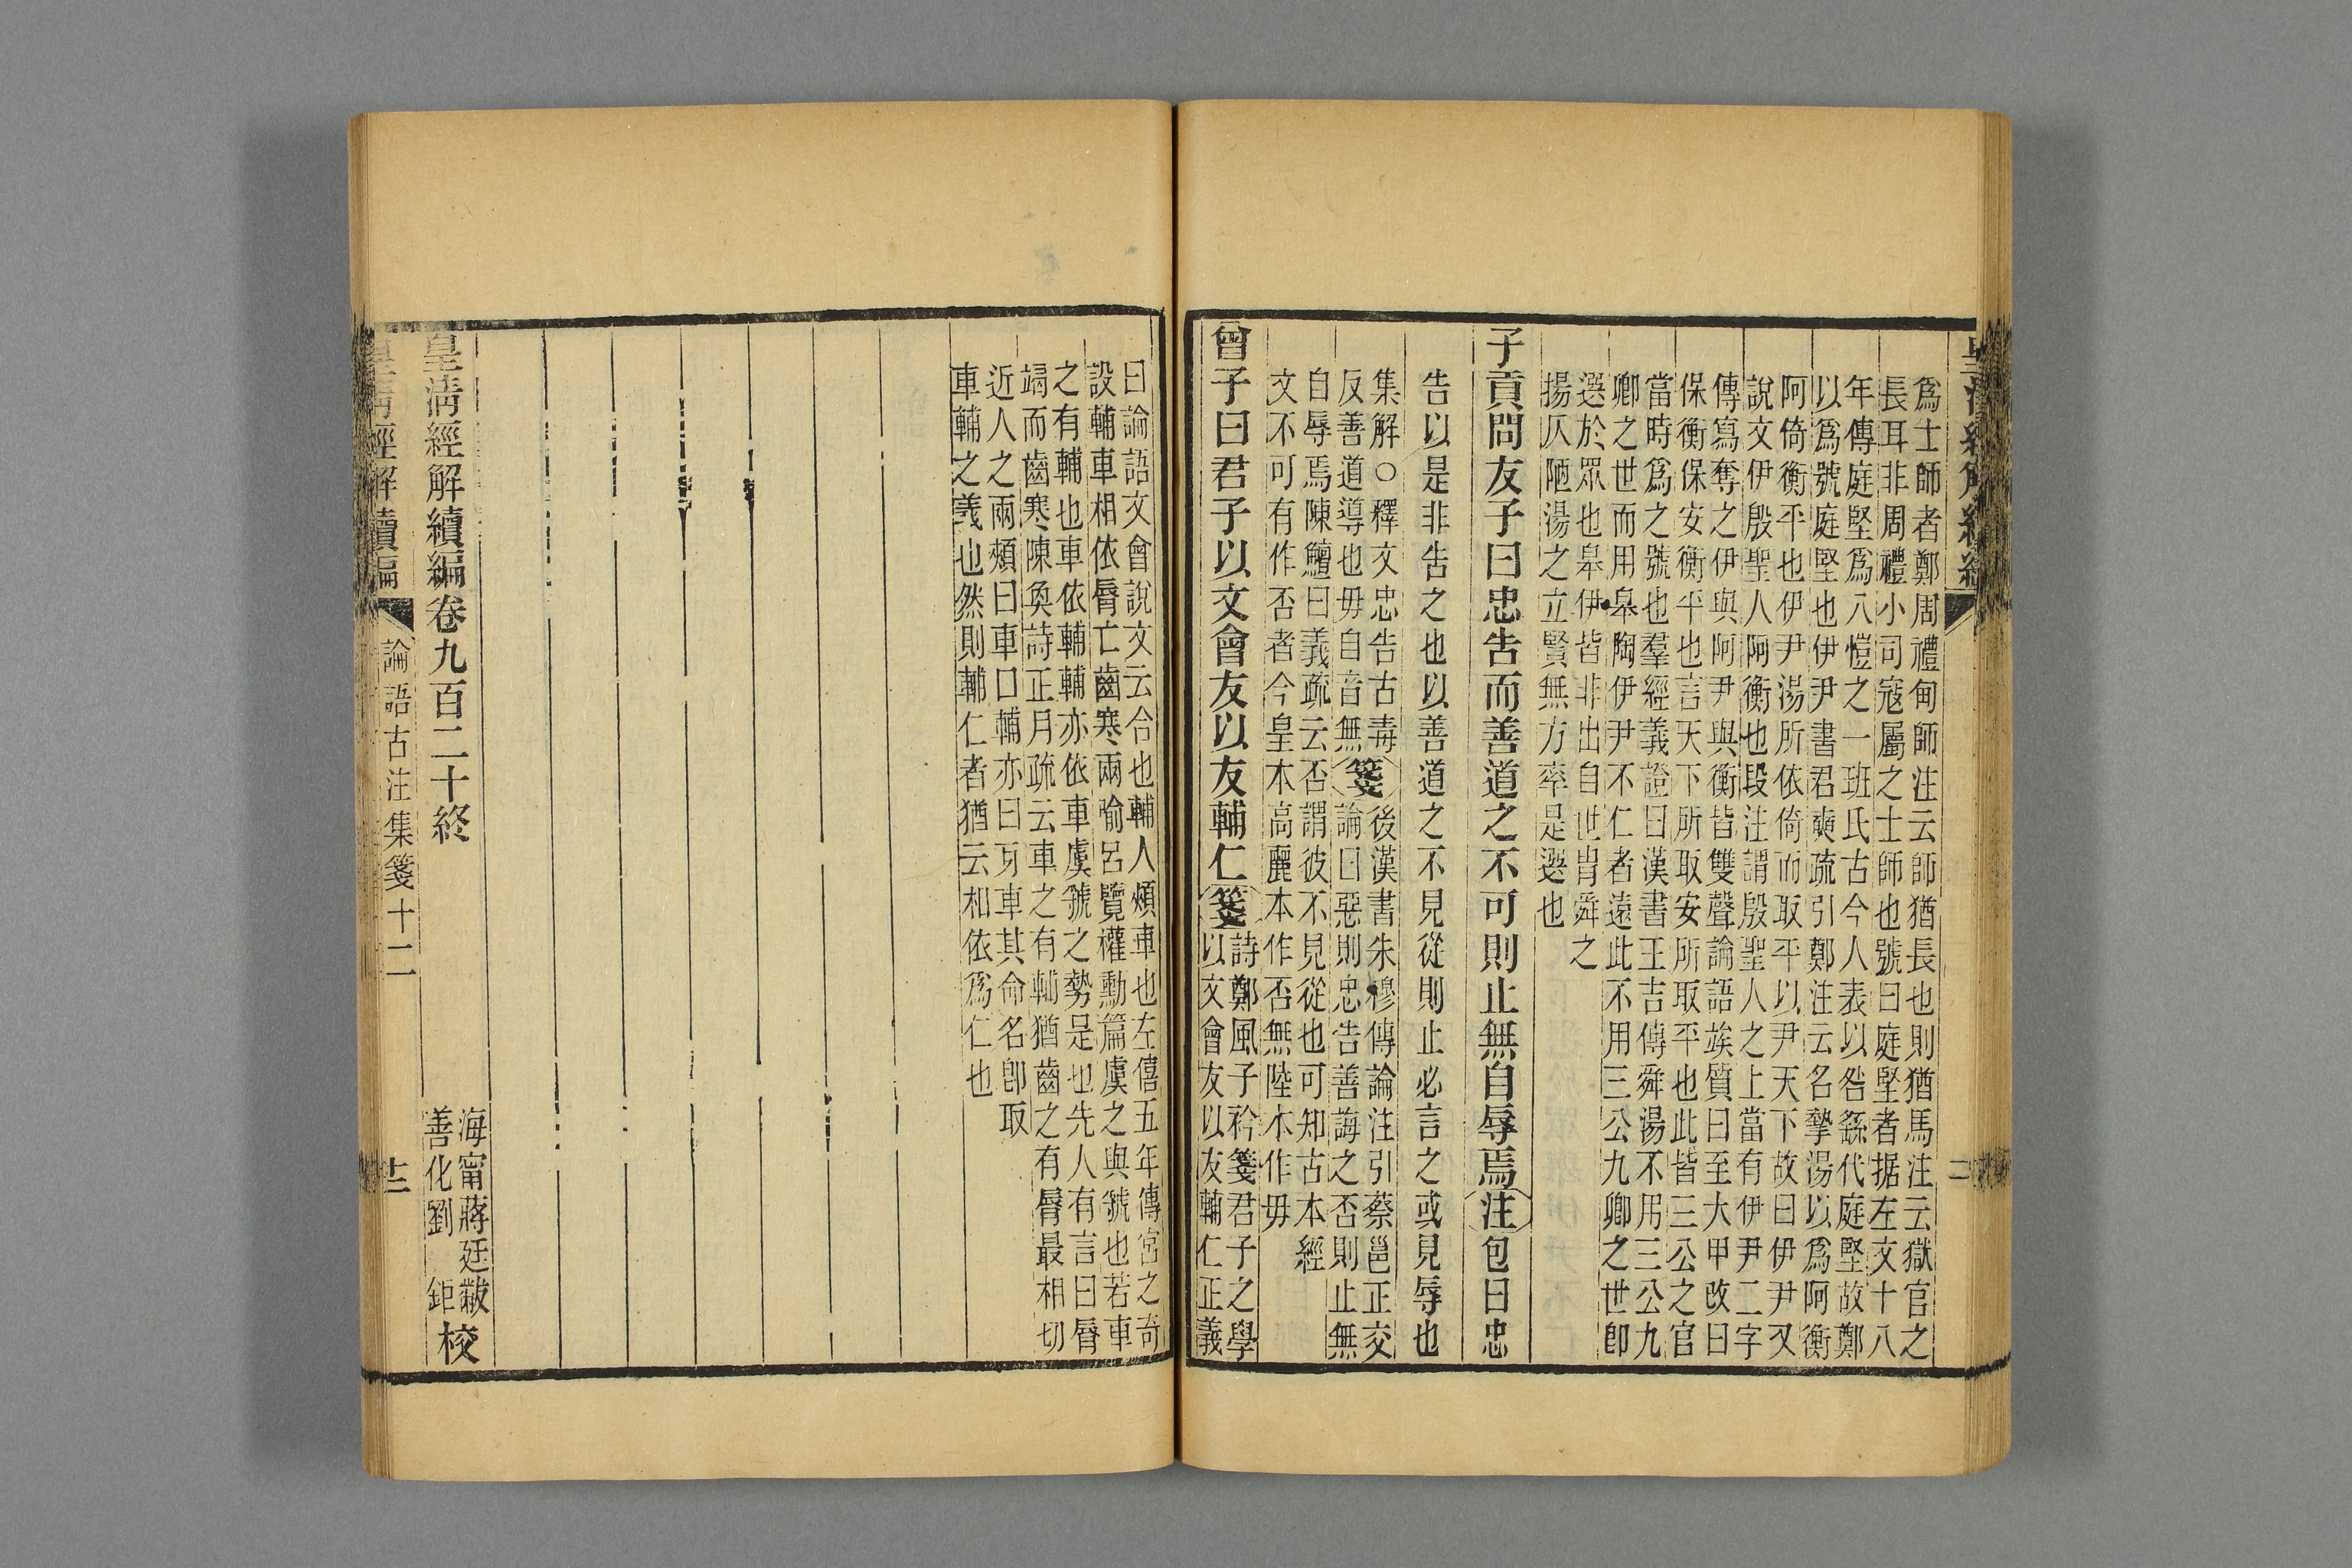 爲士師者鄭周禮甸師注云師猶長也則猶馬注云獄官之
長耳非周禮小司寇屬之士師也號曰庭堅者据左文十八
年傳庭堅爲八愷之一班氏古今人表以咎繇代庭堅故鄭
以爲號庭堅也伊尹書君奭疏引鄭注云名摯湯以爲阿衡
阿倚衡平也伊尹湯所依倚而取平以尹天下故曰伊尹又
說文伊殷聖人阿衡也段注謂殷聖人之上當有伊尹二字
傳寫奪之伊與阿尹與衡皆雙聲論語竢質曰至大甲改曰
保衡保安衡平也言天下所取安所取平也此皆三公之官
當時爲之號也羣經義證曰漢書王吉傳舜湯不用三公九
卿之世而用皋陶伊尹不仁者遠此不用三公九卿之世卽
選於眾也皋伊皆非出自世胄舜之
揚仄陋湯之立賢無方率是選也
子貢問友子曰忠告而善道之不可則止無自辱焉注包曰忠
告以是非告之也以善道之不見從則止必言之或見辱也
集解○釋文忠告古毒
反善道導也毋自音無箋後漢書朱穆傳論注引蔡邕正交
論曰惡則忠告善誨之否則止無
自辱焉陳鱣曰義疏云否謂彼不見從也可知古本經
文不可有作否者今皇本高麗本作否無陸本作毋
曾子曰君子以文會友以友輔仁箋詩鄭風子衿箋君子之學
以文會友以友輔仁正義
曰論語文會說文云合也輔人頰車也左僖五年傳宮之奇
設輔車相依脣亡齒寒兩喻呂覽權勳篇虞之與虢也若車
之有輔也車依輔輔亦依車虞虢之勢是也先人有言曰脣
竭而齒寒陳奐詩正月疏云車之有輔猶齒之有脣最相切
近人之兩頰曰車口輔亦曰牙車其命名卽取
車輔之義也然則輔仁者猶云相依爲仁也
皇清經解續編卷九百二十終
海甯蔣廷黻
善化劉 鉅校
皇清經解續編
論語古注集箋十二
十二